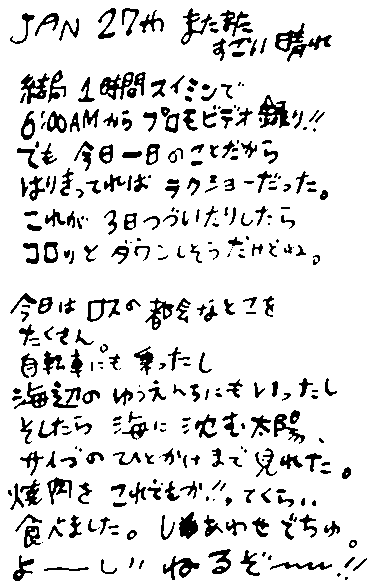 JAN 27th また また
すごい 晴れ
結局 1時間スイミンで
6:00AMから プロモビデオ 録り!!
でも 今日一日のことだから
はりきってれば ラクショーだった。
これが 3日つづいたりしたら
コロッと ダウンしそうだけどね。
今日は ロスの 都会なとこを
たくさん。
自転車にも 乗ったし
海辺の ゆうえんちにもいったし
そしたら 海に 沈む太陽、
サイゴのひとかけまで 見れた。
焼肉を これでもか!!ってくらい
食べました。しあわせでちゅ。
よーーしい ねるぞ〜〜!!